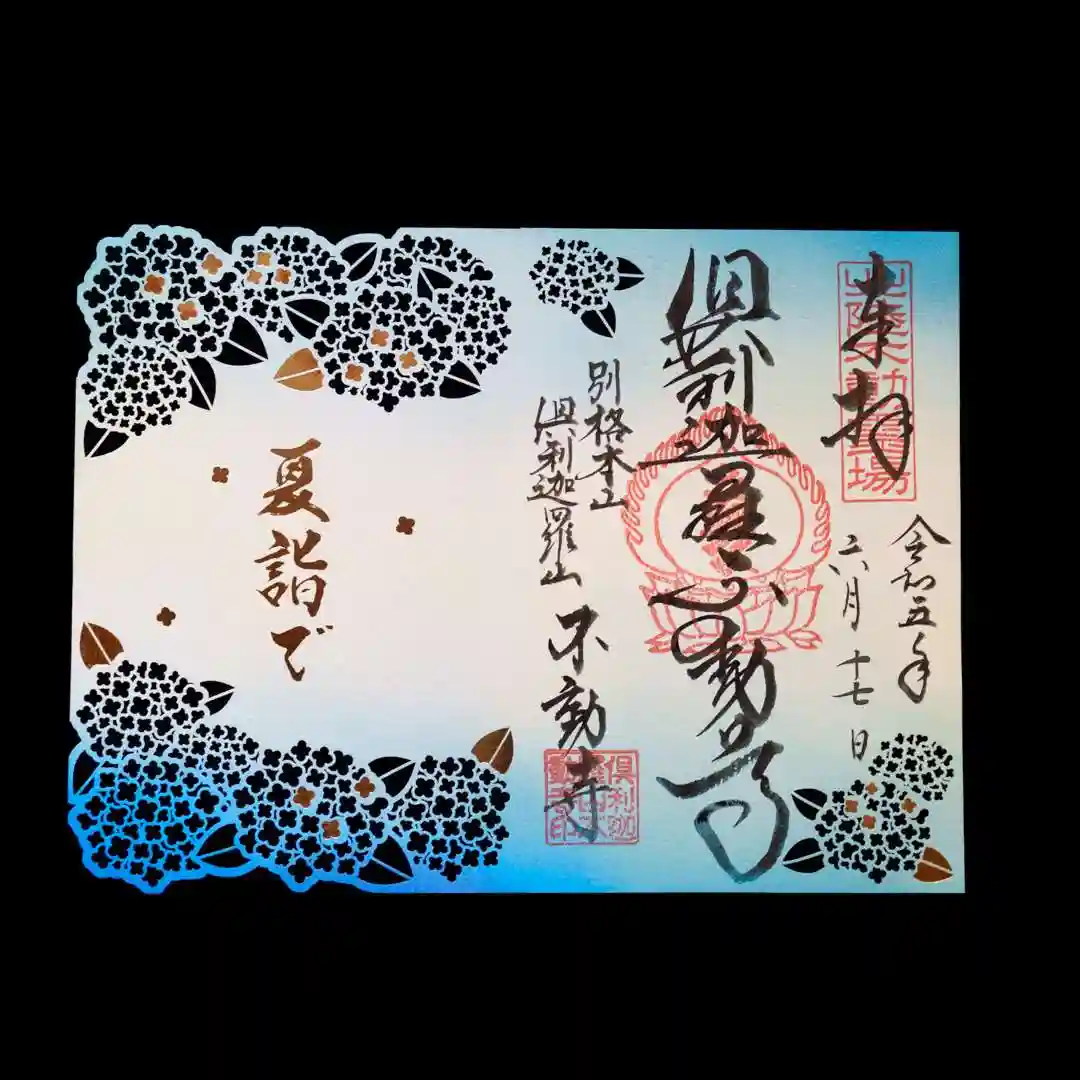 奉拝
北陸不動霊場
令和五年
六月十七日
倶利迦羅不動尊
別格本山
倶利迦羅山
不動寺
夏詣で